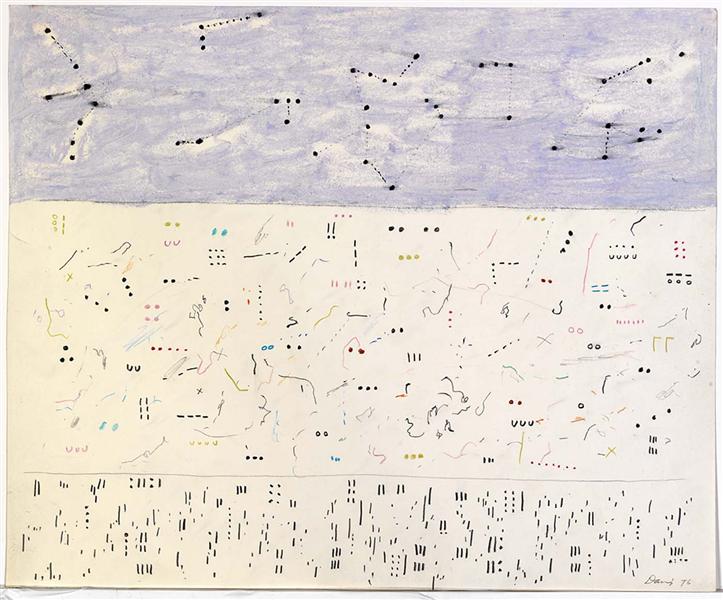 Davis 76